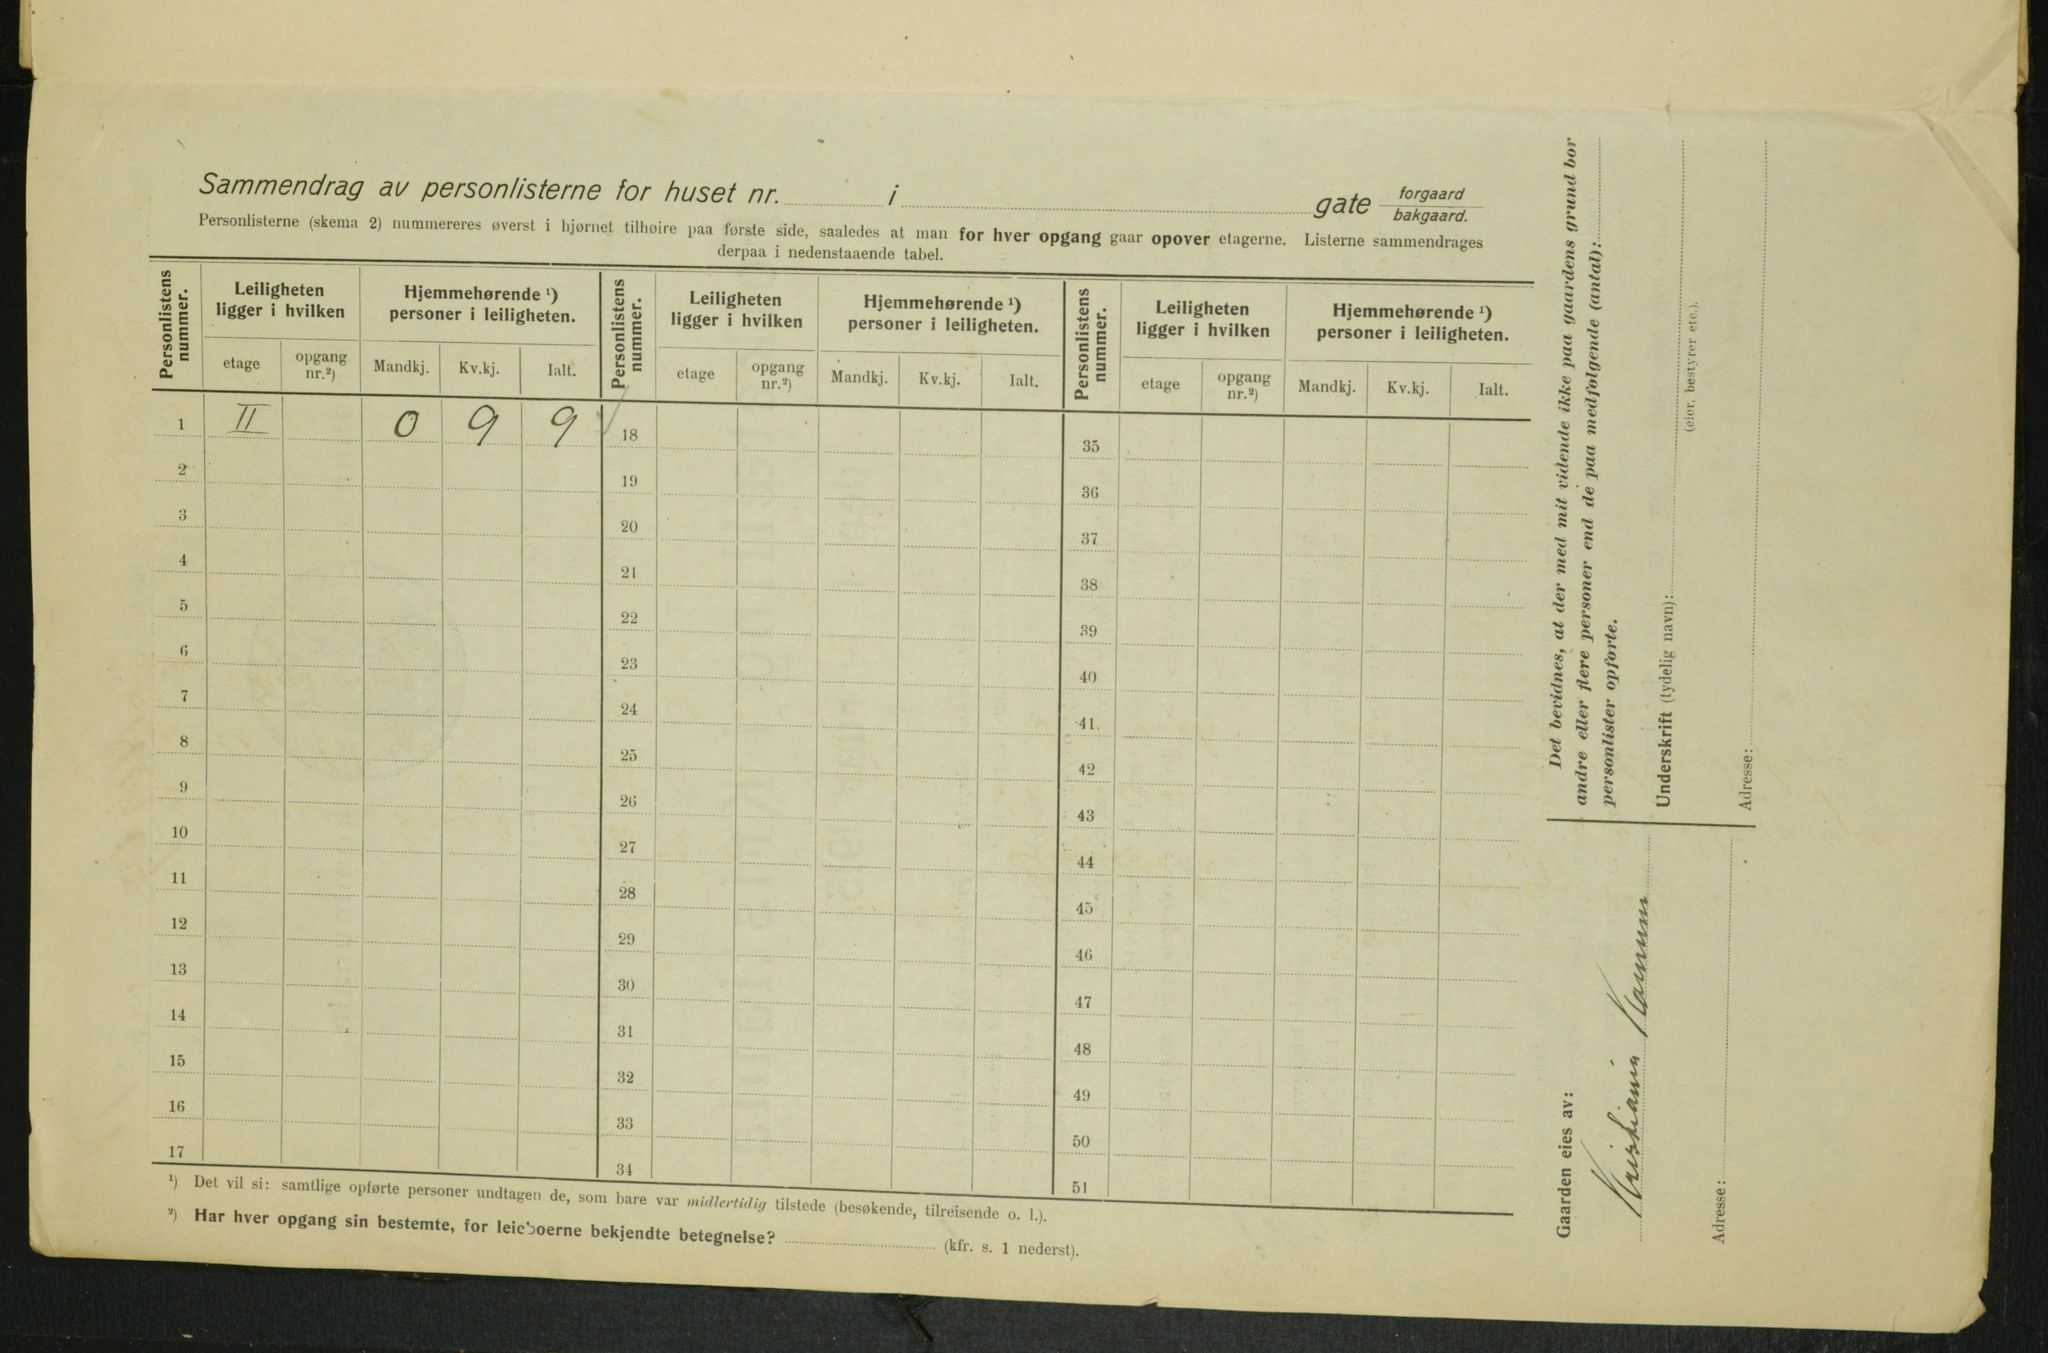 Sammendrag av personlisterne for huset nr. i gate forgaard
bakgaard.
Personlisterne (skema 2) nummereres øverst i hjørnet tilhøire paa første side, saaledes at man for hver opgang gaar opover etagerne. Listerne sammendrages
derpaa i nedenstaaende tabel.
Personlistens nummer. Leiligheten ligger i hvilken Hjemmehørende ¹) personer i leiligheten. Personlistens nummer. Leiligheten ligger i hvilken Hjemmehørende ¹) personer i leiligheten. Personlistens nummer. Leiligheten ligger i hvilken Hjemmehørende ¹) personer i leiligheten.
etage opgang nr.²) Mandkj. Kv.kj. Ialt. etage opgang nr.²) Mandkj. Kv.kj. Ialt. etage opgang nr.²) Mandkj. Kv.kj. Ialt.
1 II 0 9 9 18 35
2 19 36
3 20 37
4 21 38
5 22 39
6 23 40
7 24 41
8 25 42
9 26 43
10 27 44
11 28 45
12 29 46
13 30 47
14 31 48
15 32 49
16 33 50
17 34 51
¹) Det vil si: samtlige opførte personer undtagen de, som bare var midlertidig tilstede (besøkende, tilreisende o. l.).
²) Har hver opgang sin bestemte, for leieboerne bekjendte betegnelse? (kfr. s. 1 nederst).
Det bevidnes, at der med mit vidende ikke paa gaardens grund bor
andre eller flere personer end de paa medfølgende (antal):
personlister opførte.
Underskrift (tydelig navn):
(eier, bestyrer etc.).
Adresse:
Gaarden eies av:
Kristiania Kommune
Adresse: